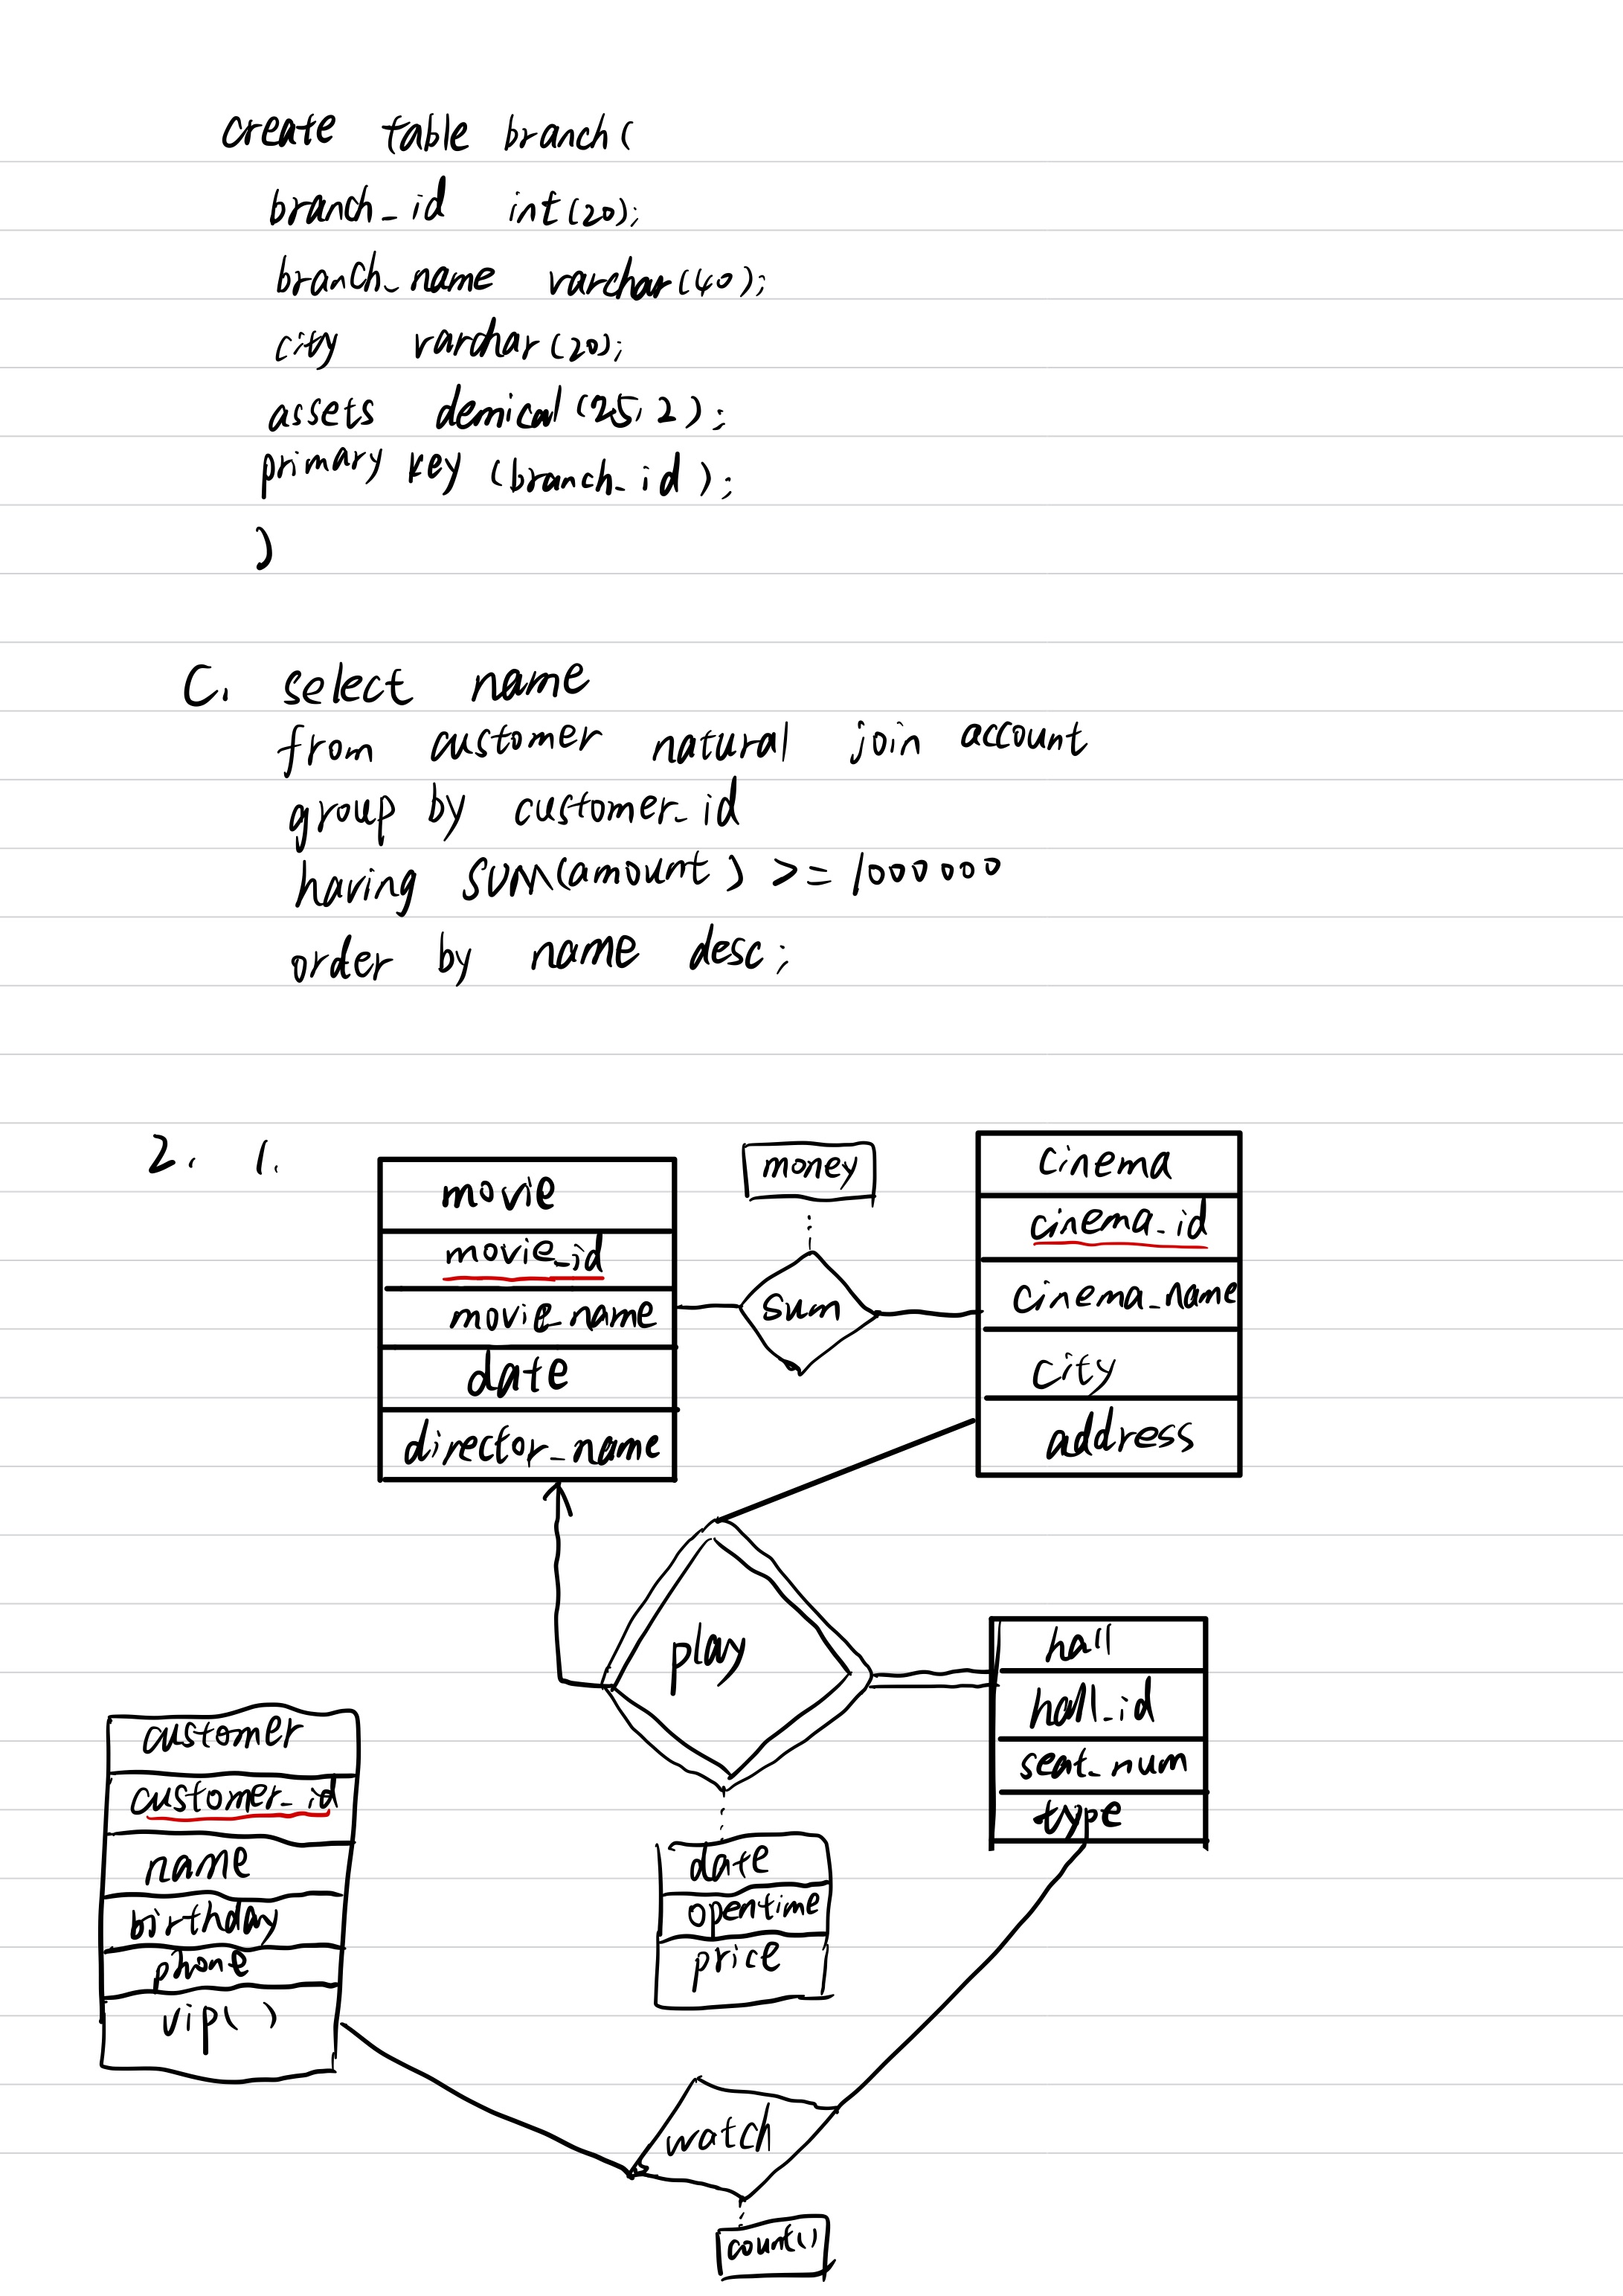 create table branch(
branch_id int(20);
branch_name varchar(40);
city varchar(20);
assets demical(25,2);
primary key (branch_id);
)
C. select name
from customer natural join account
group by customer_id
having SUM(amount) >= 1000000
order by name desc;
2. 1.
movie
movie_id
movie_name
date
director_name
money
sum
cinema
cinema_id
cinema_name
city
address
play
hall
hall_id
seat_num
type
customer
customer_id
name
birthday
phone
vip( )
date
opentime
price
watch
count()